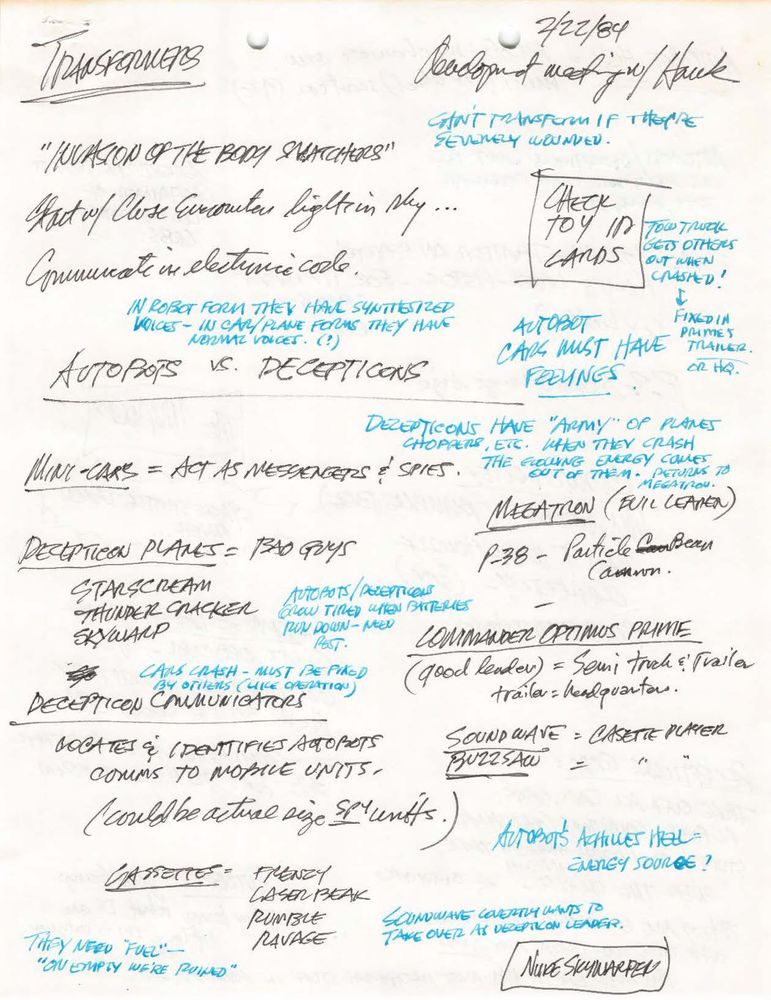 2/22/84
TRANSFORMERS
Development meeting w/ Hank
CAN'T TRANSFORM IF THEY'RE
SEVERELY WOUNDED.
"INVASION OF THE BODY SNATCHERS"
Start w/ Close Encounters light in sky ...
Communicate in electronic code.
CHECK
TOY ID
CARDS
TOW TRUCK
GETS OTHERS
OUT WHEN
CRASHED!
↓
FIXED IN
PRIME'S
TRAILER.
OR HQ.
IN ROBOT FORM THEY HAVE SYNTHESIZED
VOICES - IN CAR/PLANE FORMS THEY HAVE
NORMAL VOICES. (?)
AUTOBOT
CARS MUST HAVE
FEELINGS
AUTOBOTS VS. DECEPTICONS
DECEPTICONS HAVE "ARMY" OF PLANES
CHOPPERS, ETC. WHEN THEY CRASH
THE GLOWING ENERGY COMES
OUT OF THEM. RETURNS TO
MEGATRON.
MINI-CARS = ACT AS MESSENGERS & SPIES.
MEGATRON (EVIL LEADER)
P-38 - Particle Beam
Cannon.
DECEPTICON PLANES = BAD GUYS
STARSCREAM
THUNDER CRACKER
SKYWARP
AUTOBOTS/DECEPTICONS
GROW TIRED WHEN BATTERIES
RUN DOWN - NEED
REST.
COMMANDER OPTIMUS PRIME
(good leader) = Semi truck & Trailer
trailer = headquarters.
CARS CRASH - MUST BE FIXED
BY OTHERS (LIKE OPERATION)
DECEPTICON COMMUNICATORS
LOCATES & IDENTIFIES AUTOBOTS
COMMS TO MOBILE UNITS.
(could be actual size SPY units.)
SOUNDWAVE = CASETTE PLAYER
BUZZSAW = " "
AUTOBOT'S ACHILLES HEEL =
ENERGY SOURCE?
CASSETTES = FRENZY
LASERBEAK
RUMBLE
RAVAGE
SOUNDWAVE COVERTLY WANTS TO
TAKE OVER AS DECEPTICON LEADER.
THEY NEED "FUEL" -
"ON EMPTY WE'RE RUINED"
NUKE SKYWARPER